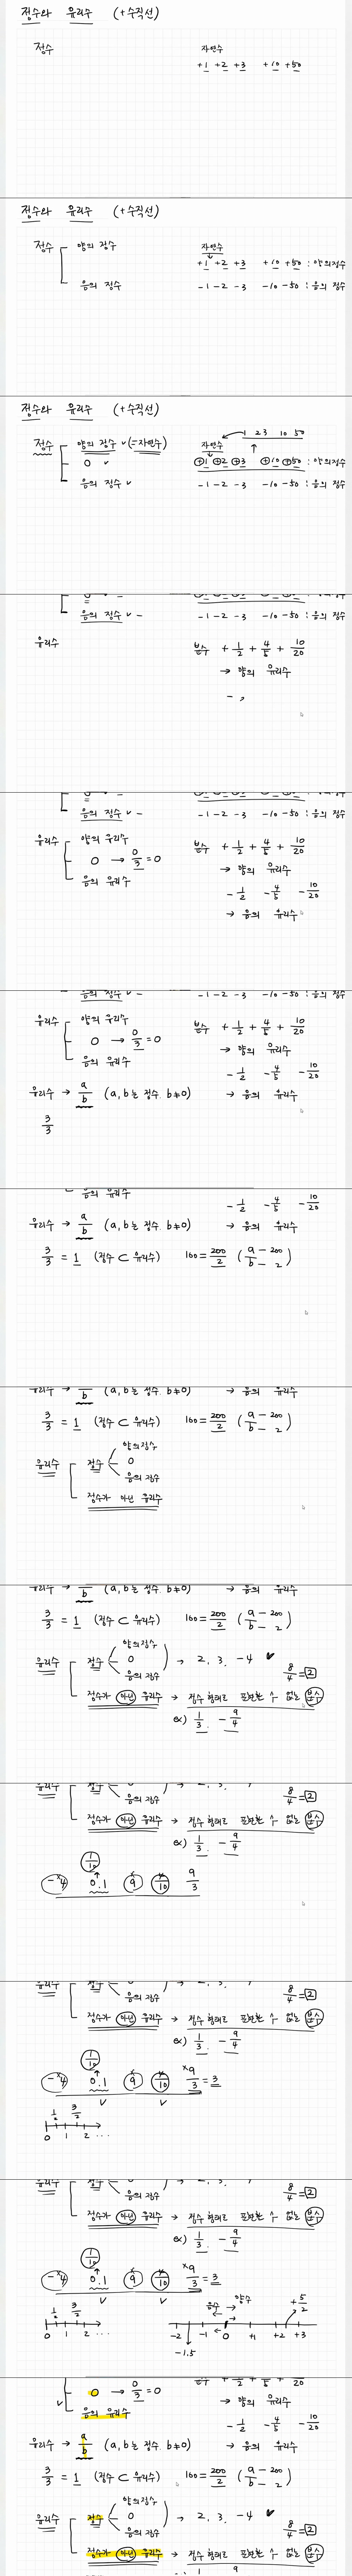 정수와 유리수 (+수직선)
정수 자연수
+1 +2 +3 +10 +50
정수와 유리수 (+수직선)
정수 양의 정수 자연수
+1 +2 +3 +10 +50 : 양의정수
음의 정수 -1 -2 -3 -10 -50 : 음의 정수
정수와 유리수 (+수직선)
1 2 3 10 50
정수 양의 정수 v (=자연수) 자연수
0 v +1 +2 +3 +10 +50 : 양의정수
음의 정수 v -1 -2 -3 -10 -50 : 음의 정수
음의 정수 v - -1 -2 -3 -10 -50 : 음의 정수
유리수 분수 +1/2 +4/5 10/20
→ 양의 유리수
-
음의 정수 v - -1 -2 -3 -10 -50 : 음의 정수
유리수 양의 유리수 분수 +1/2 +4/5 10/20
0 → 0/3 = 0 → 양의 유리수
음의 유리수 -1/2 -4/5 -10/20
→ 음의 유리수
음의 정수 v - -1 -2 -3 -10 -50 : 음의 정수
유리수 양의 유리수 분수 +1/2 +4/5 10/20
0 → 0/3 = 0 → 양의 유리수
음의 유리수 -1/2 -4/5 -10/20
유리수 → a/b (a, b는 정수. b≠0) → 음의 유리수
3/3
음의 유리수 -1/2 -4/5 -10/20
유리수 → a/b (a, b는 정수. b≠0) → 음의 유리수
3/3 = 1 (정수 ⊂ 유리수) 100 = 200/2 (a - 200 b - 2)
유리수 → b (a, b는 정수. b≠0) → 음의 유리수
3/3 = 1 (정수 ⊂ 유리수) 100 = 200/2 (a - 200 b - 2)
양의정수
유리수 정수 0
음의 정수
정수가 아닌 유리수
유리수 → b (a, b는 정수. b≠0) → 음의 유리수
3/3 = 1 (정수 ⊂ 유리수) 100 = 200/2 (a - 200 b - 2)
양의정수
유리수 정수 0 → 2, 3, -4
음의 정수 8/4 = 2
정수가 아닌 유리수 → 정수 형태로 표현할 수 없는 분수
ex) 1/3. -9/4
유리수 정수 음의 정수 8/4 = 2
정수가 아닌 유리수 → 정수 형태로 표현할 수 없는 분수
ex) 1/3. -9/4
1/10
-4 0.1 9 4/10 9/3
유리수 정수 음의 정수 8/4 = 2
정수가 아닌 유리수 → 정수 형태로 표현할 수 없는 분수
ex) 1/3. -9/4
1/10
-4 0.1 9 4/10 9/3 = 3
v v
1/2 3/2
0 1 2 ...
유리수 정수 음의 정수 8/4 = 2
정수가 아닌 유리수 → 정수 형태로 표현할 수 없는 분수
ex) 1/3. -9/4
1/10
-4 0.1 9 4/10 9/3 = 3
v v
1/2 3/2 음수 양수 +5/2
0 1 2 ... -2 -1 0 +1 +2 +3
-1.5
0 → 0/3 = 0 → 양의 유리수
음의 유리수 -1/2 -4/5 -10/20
유리수 → a/b (a, b는 정수. b≠0) → 음의 유리수
3/3 = 1 (정수 ⊂ 유리수) 100 = 200/2 (a - 200 b - 2)
양의정수
유리수 정수 0 → 2, 3, -4
음의 정수 8/4 = 2
정수가 아닌 유리수 → 정수 형태로 표현할 수 없는 분수